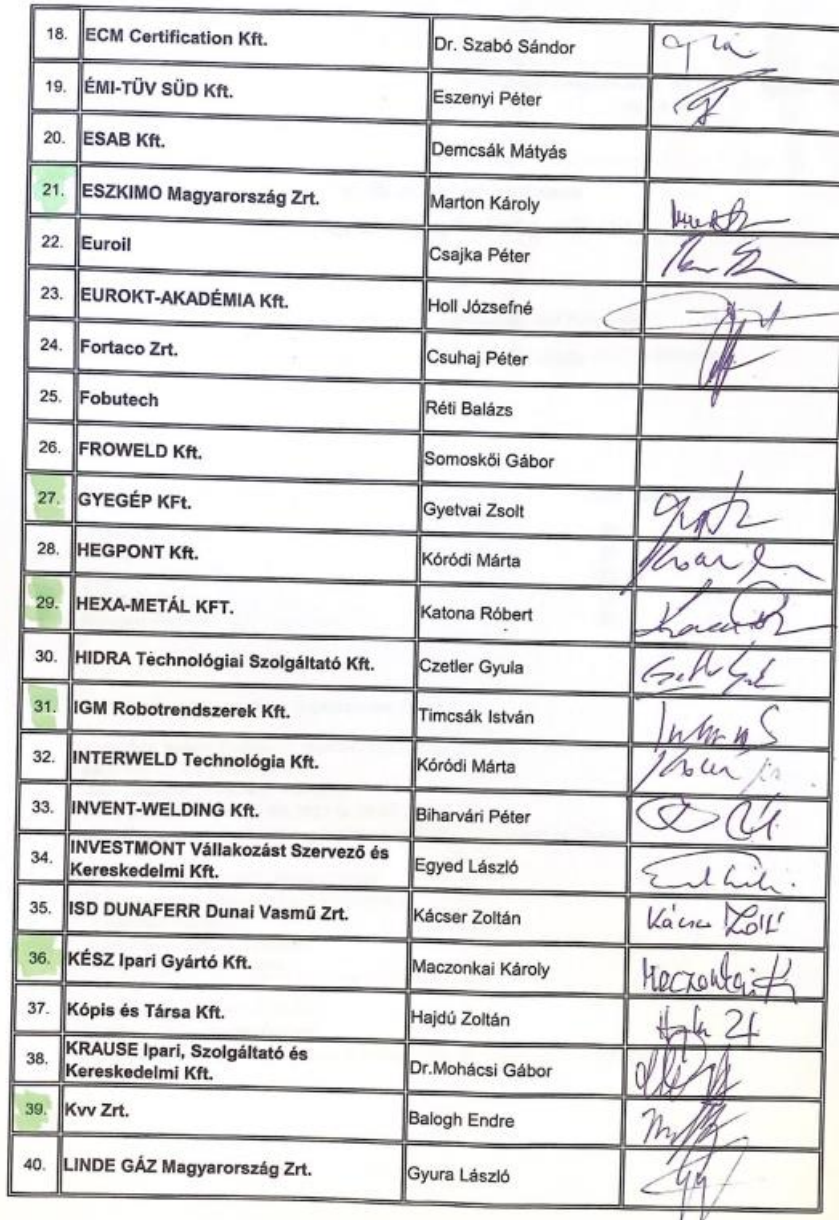 18. ECM Certification Kft. Dr. Szabó Sándor
19. ÉMI-TÜV SÜD Kft. Eszenyi Péter
20. ESAB Kft. Demcsák Mátyás
21. ESZKIMO Magyarország Zrt. Marton Károly
22. Euroil Csajka Péter
23. EUROKT-AKADÉMIA Kft. Holl Józsefné
24. Fortaco Zrt. Csuhaj Péter
25. Fobutech Réti Balázs
26. FROWELD Kft. Somoskői Gábor
27. GYEGÉP KFt. Gyetvai Zsolt
28. HEGPONT Kft. Kóródi Márta
29. HEXA-METÁL KFT. Katona Róbert
30. HIDRA Technológiai Szolgáltató Kft. Czetler Gyula
31. IGM Robotrendszerek Kft. Timcsák István
32. INTERWELD Technológia Kft. Kóródi Márta
33. INVENT-WELDING Kft. Biharvári Péter
34. INVESTMONT Vállakozást Szervező és
Kereskedelmi Kft. Egyed László
35. ISD DUNAFERR Dunai Vasmű Zrt. Kácser Zoltán
36. KÉSZ Ipari Gyártó Kft. Maczonkai Károly
37. Kópis és Társa Kft. Hajdú Zoltán
38. KRAUSE Ipari, Szolgáltató és
Kereskedelmi Kft. Dr.Mohácsi Gábor
39. Kvv Zrt. Balogh Endre
40. LINDE GÁZ Magyarország Zrt. Gyura László